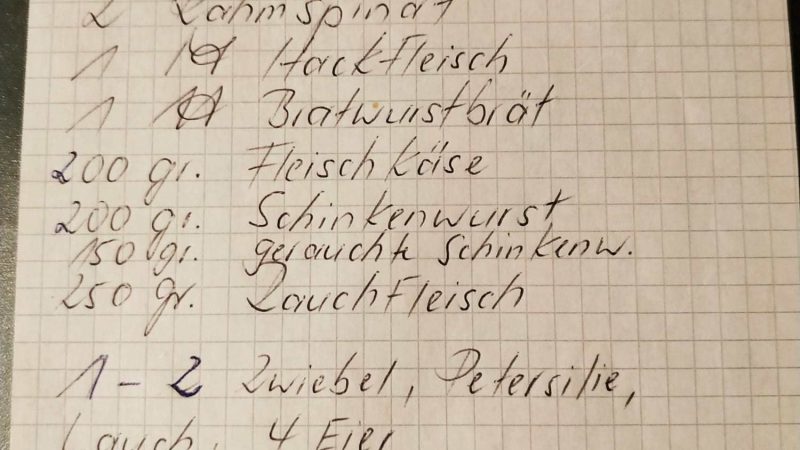 2 Rahmspinat
1 ℔ Hackfleisch
1 ℔ Bratwurstbrät
200 gr. Fleischkäse
200 gr. Schinkenwurst
150 gr. gerauchte Schinkenw.
250 gr. Rauchfleisch
1 - 2 Zwiebel, Petersilie,
Lauch, 4 Eier